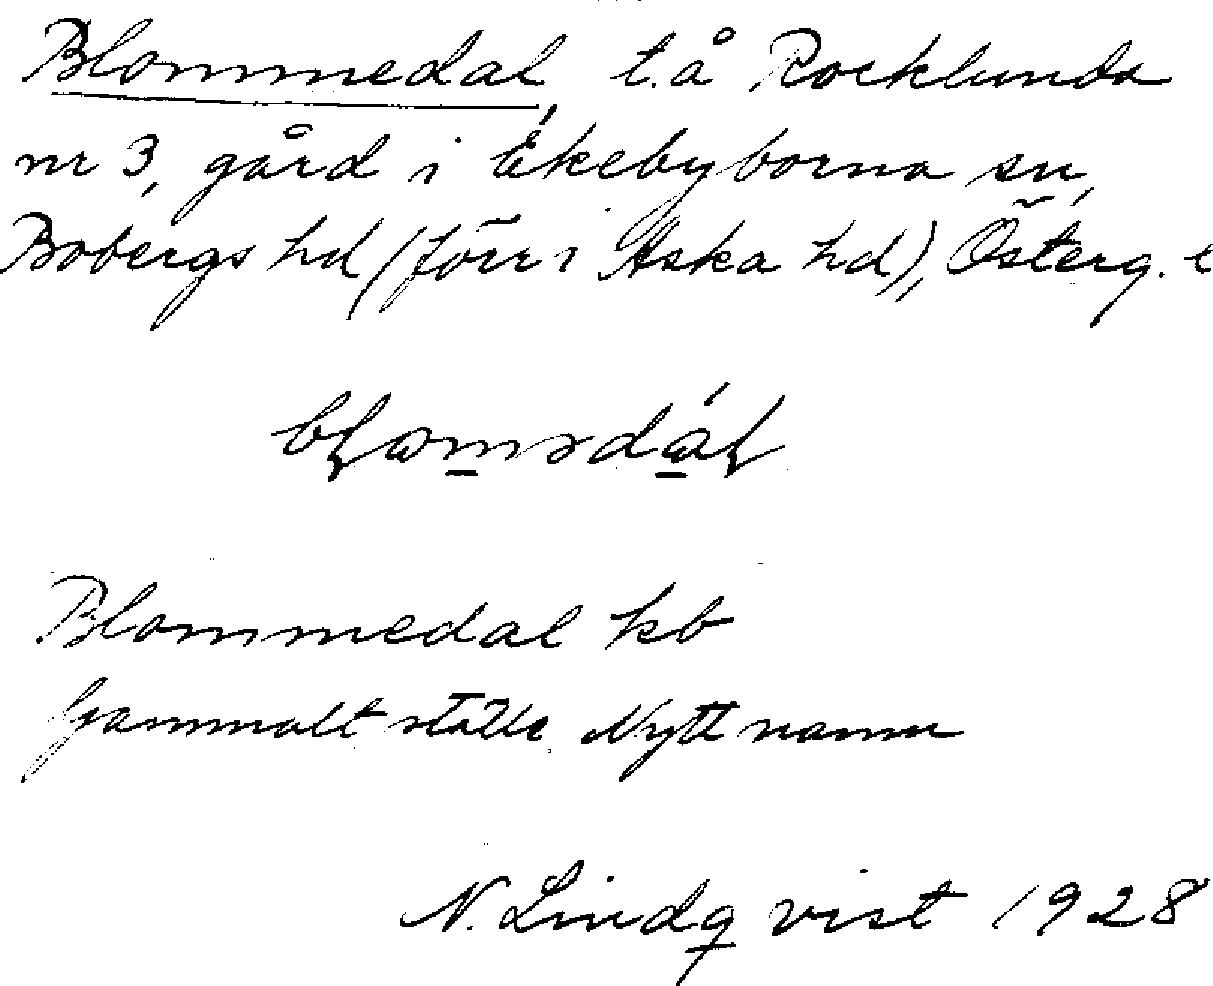 Blommedal, t.å Rocklunda
nr 3, gård i Ekebyborna sn,
Bobergs hd (förr i Aska hd), Österg. l
Blommedal kb
Gammalt ställe. Nytt namn
N. Lindqvist 1928